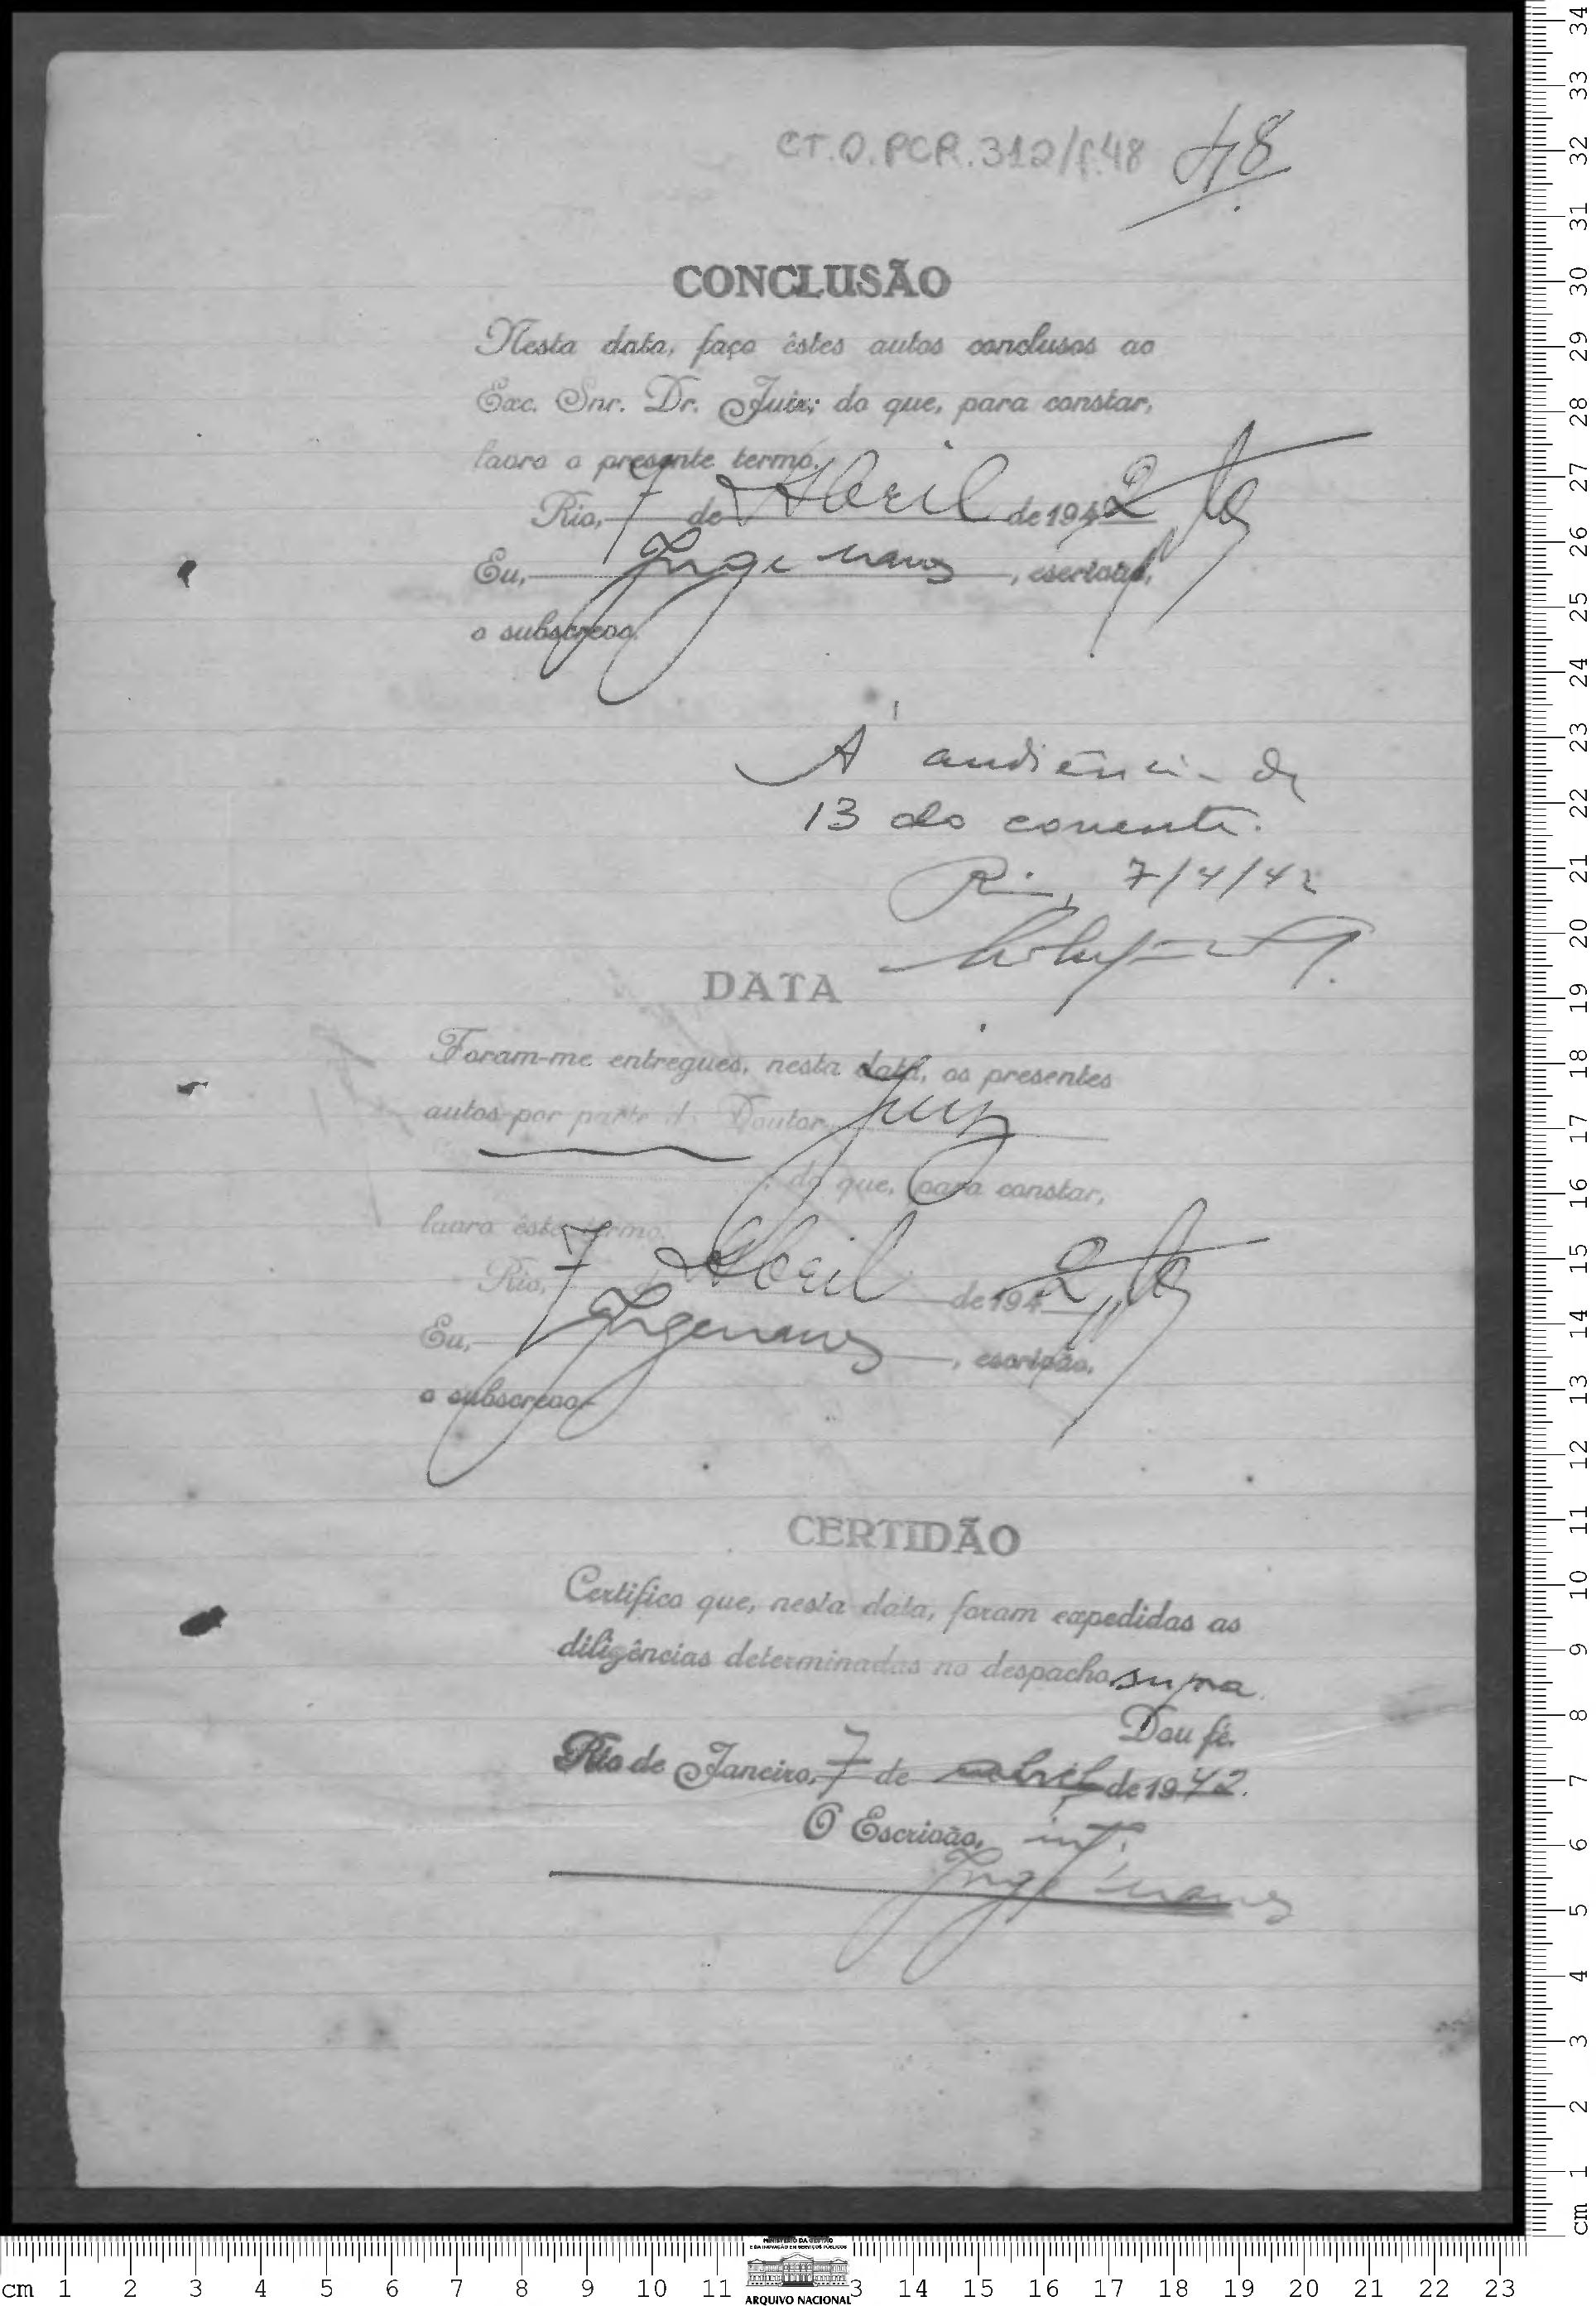 CT.0.PCR.312/f.48 48
CONCLUSÃO
Nesta data, faço êstes autos conclusos ao
Exc. Snr. Dr. Juiz; do que, para constar,
lavro o presente termo.
Rio, 7 de Abril de 1942
Eu, , escrivão,
o subscrevo.
A' audiência de
13 do corrente.
Rio, 7/4/42
DATA
Foram-me entregues, nesta data, os presentes
autos por parte do Doutor Juiz
; do que, para constar,
lavro êste termo.
Rio, 7 de Abril de 1942
Eu, , escrivão,
o subscrevo.
CERTIDÃO
Certifico que, nesta data, foram expedidas as
diligências determinadas no despacho supra.
Dou fé.
Rio de Janeiro, 7 de abril de 1942.
O Escrivão, int.
MINISTÉRIO DA GESTÃO
E DA INOVAÇÃO EM SERVIÇOS PÚBLICOS
ARQUIVO NACIONAL
cm 1 2 3 4 5 6 7 8 9 10 11 3 14 15 16 17 18 19 20 21 22 23
cm 1 2 3 4 5 6 7 8 9 10 11 12 13 14 15 16 17 18 19 20 21 22 23 24 25 26 27 28 29 30 31 32 33 34